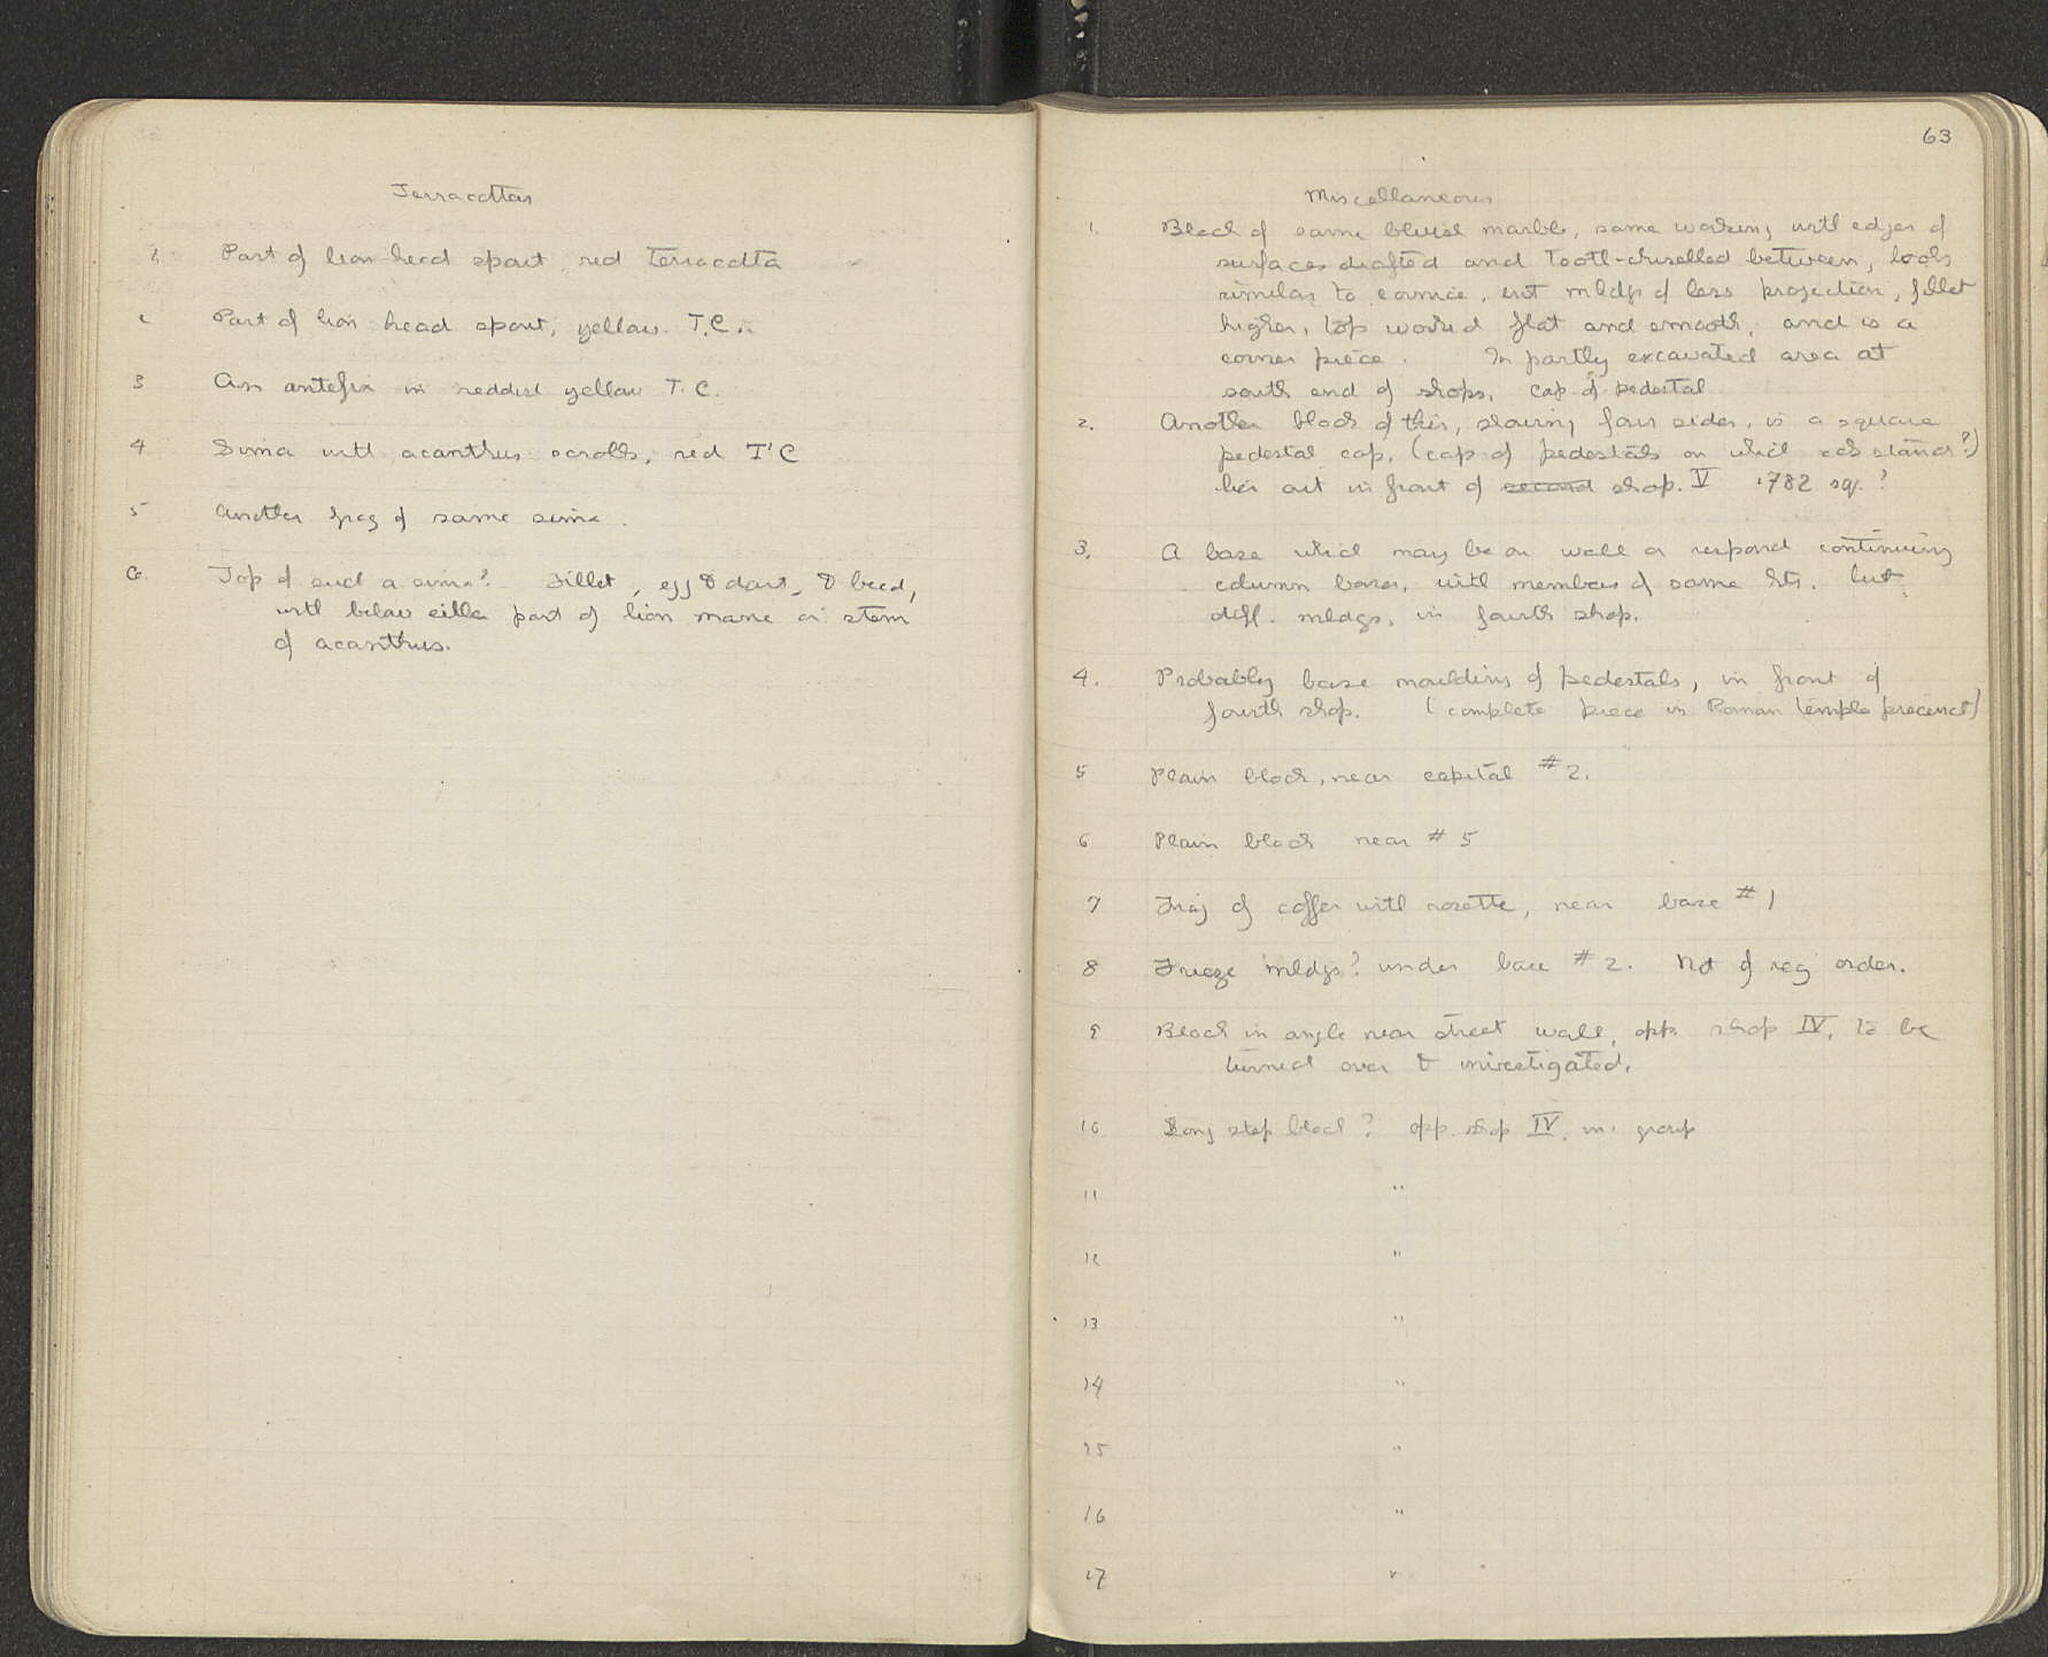 Terracottas
1. Part of lion head spout, red terracotta
2 Part of lion head spout, yellow T.C.
3 An antefix in reddish yellow T.C.
4 Sima with acanthus scrolls, red T.C
5 Another frag of same sima.
6. Top of such a sima? Fillet, egg & dart, & bead,
with below either part of lion mane or stem
of acanthus.
63
Miscellaneous
1. Block of same bluish marble, same working with edges of
surfaces drafted and tooth-chiselled between, looks
similar to cornice, but mldgs of less projection, fillet
higher, top worked flat and smooth, and is a
corner piece. In partly excavated area at
south end of shops. cap of pedestal
2. Another block of this, showing four sides, is a square
pedestal cap. (cap of pedestals on which cols stand?)
lies out in front of second shop. V .782 sq.?
3. A base which may be on wall or respond continuing
column bases, with members of same hts. but
diff. mldgs, in fourth shop.
4. Probably base moulding of pedestals, in front of
fourth shop. (complete piece in Roman temple precinct)
5 Plain block, near capital #2.
6 Plain block near #5
7 Frag of coffer with rosette, near base #1
8 Frieze mldgs? under base #2. Not of reg order.
9 Block in angle near street wall, opp. shop IV, to be
turned over & investigated.
10 Long step block? opp. shop IV, in group
11 "
12 "
13 "
14 "
15 "
16 "
17 "